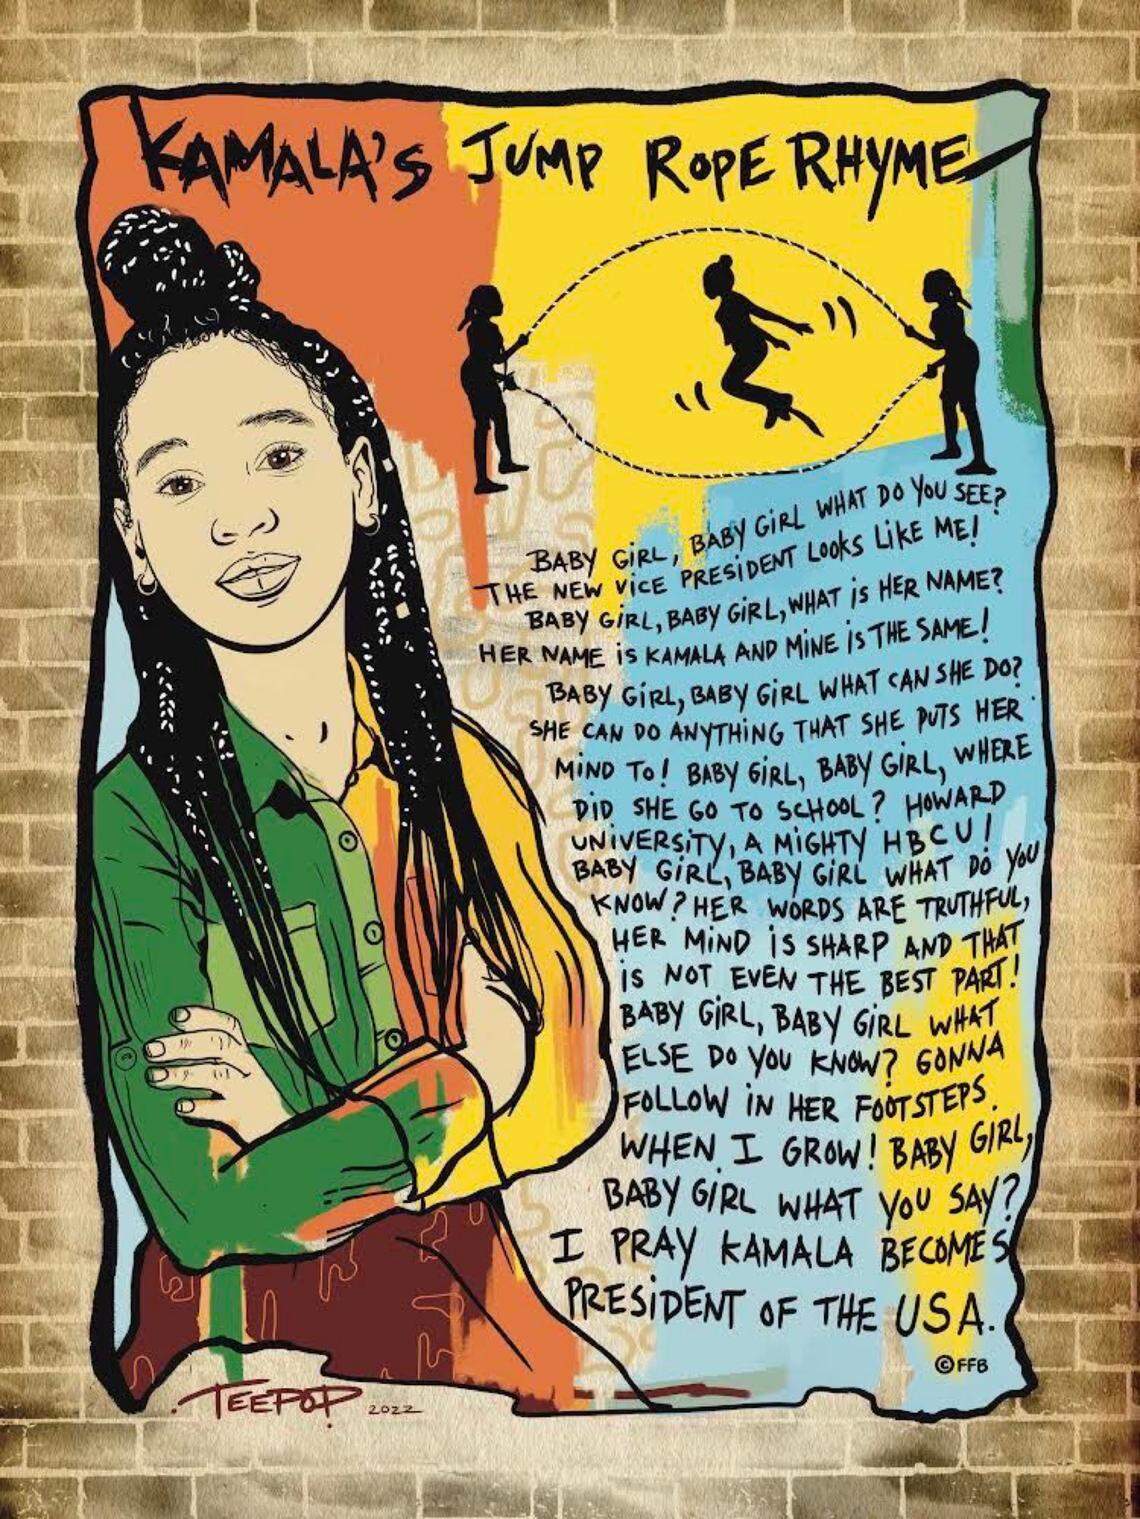 KAMALA'S JUMP ROPE RHYME
BABY GIRL, BABY GIRL WHAT DO YOU SEE?
THE NEW VICE PRESIDENT LOOKS LIKE ME!
BABY GIRL, BABY GIRL, WHAT IS HER NAME?
HER NAME IS KAMALA AND MINE IS THE SAME!
BABY GIRL, BABY GIRL WHAT CAN SHE DO?
SHE CAN DO ANYTHING THAT SHE PUTS HER
MIND TO! BABY GIRL, BABY GIRL, WHERE
DID SHE GO TO SCHOOL? HOWARD
UNIVERSITY, A MIGHTY HBCU!
BABY GIRL, BABY GIRL WHAT DO YOU
KNOW? HER WORDS ARE TRUTHFUL,
HER MIND IS SHARP AND THAT
IS NOT EVEN THE BEST PART!
BABY GIRL, BABY GIRL WHAT
ELSE DO YOU KNOW? GONNA
FOLLOW IN HER FOOTSTEPS
WHEN I GROW! BABY GIRL,
BABY GIRL WHAT YOU SAY?
I PRAY KAMALA BECOMES
PRESIDENT OF THE USA.
©FFB
TEEPOP 2022